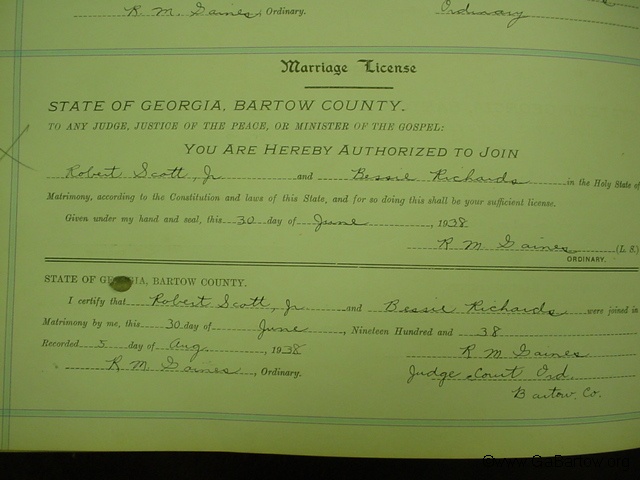 R. M. Gaines, Ordinary. Ordinary
Marriage License
STATE OF GEORGIA, BARTOW COUNTY.
TO ANY JUDGE, JUSTICE OF THE PEACE, OR MINISTER OF THE GOSPEL:
YOU ARE HEREBY AUTHORIZED TO JOIN
Robert Scott, Jr and Bessie Richards in the Holy State of
Matrimony, according to the Constitution and laws of this State, and for so doing this shall be your sufficient license.
Given under my hand and seal, this 30 day of June, 1938
R. M. Gaines (L S.)
ORDINARY.
STATE OF GEORGIA, BARTOW COUNTY.
I certify that Robert Scott, Jr and Bessie Richards were joined in
Matrimony by me, this 30 day of June, Nineteen Hundred and 38
Recorded 5 day of Aug, 1938 R M Gaines
R. M. Gaines, Ordinary. Judge Court Ord.
Bartow Co.